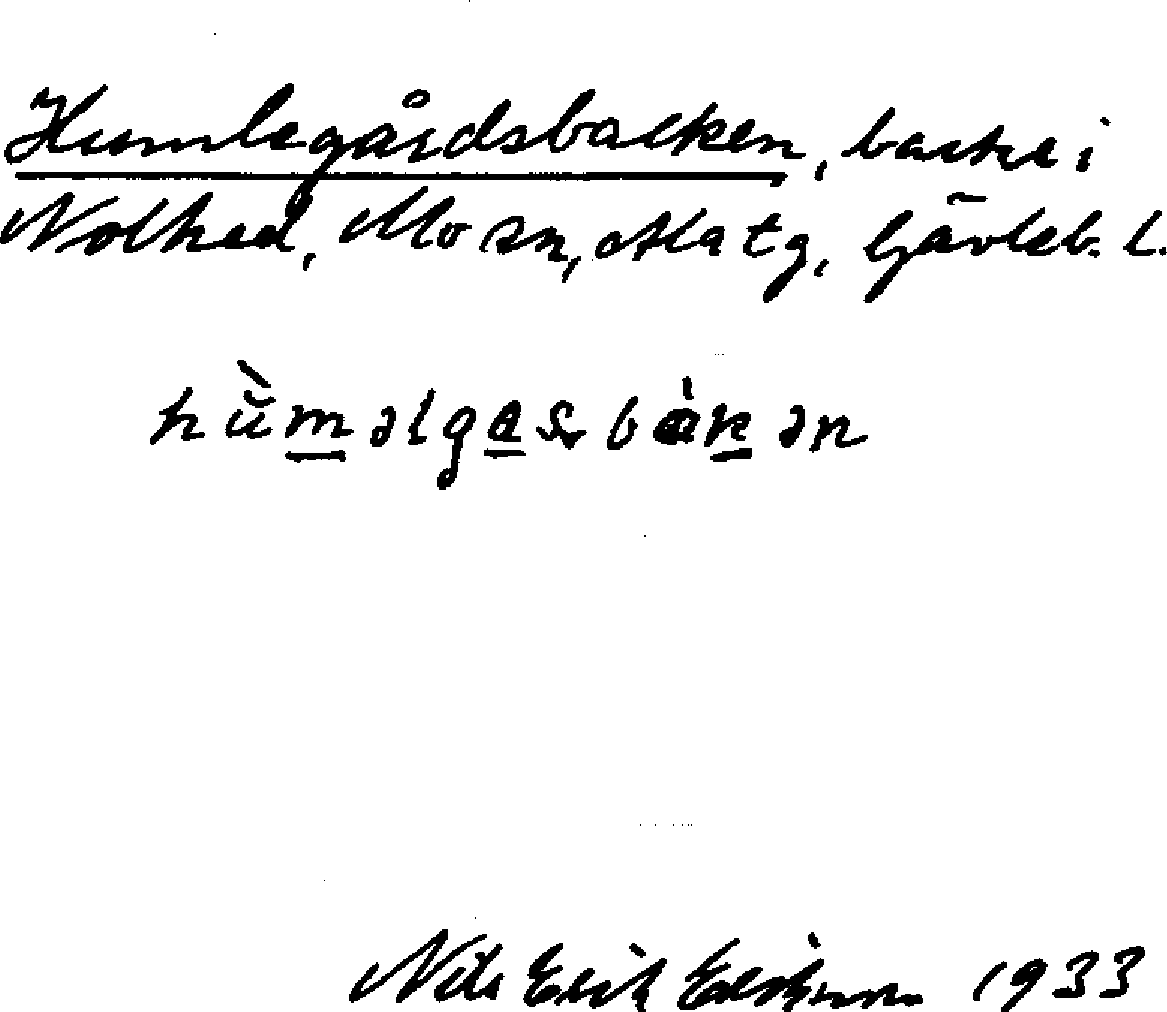 Humlegårdsbacken, backe i
Nolhed, Mo sn, Ala tg, Gävleb. l.
hu᷃̀m̲əlga̲s bàk̲ən
Nils Erik Eriksson 1933